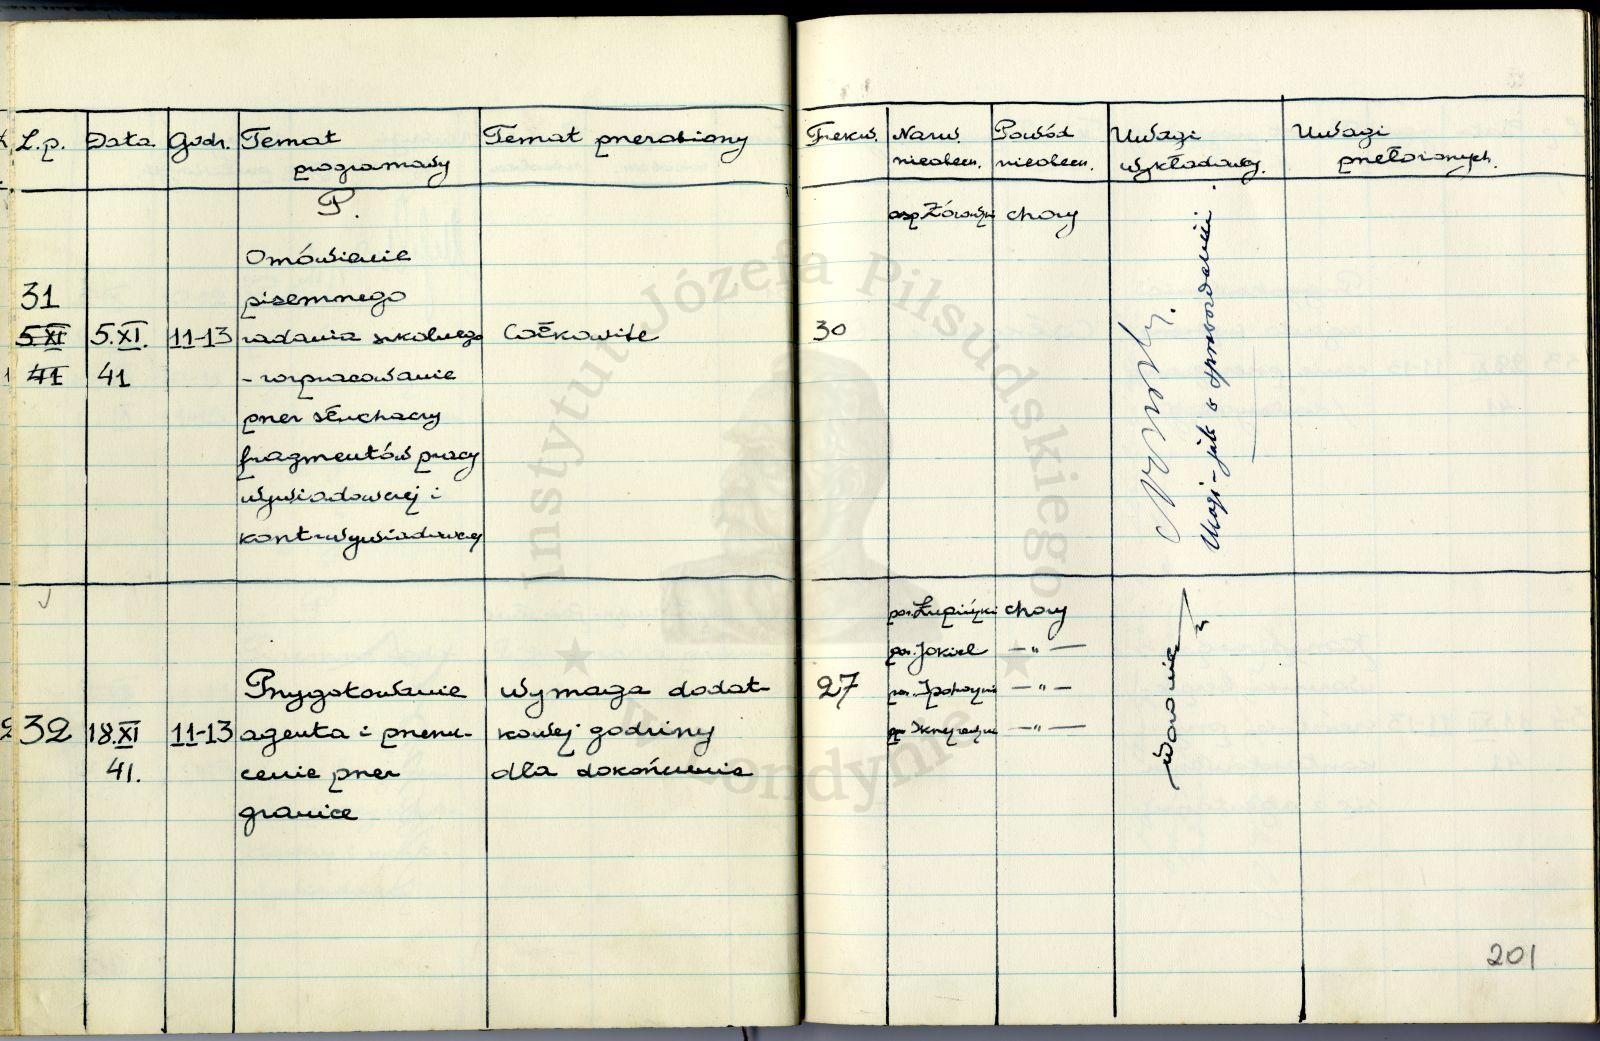 L.p. Data Godz. Temat programowy Temat przerobiony Frekw. Nazw. nieobecn. Powód nieobecn. Uwagi wykładowcy. Uwagi przełożonych.
P.
Omówienie
31 pisemnego
5.XI 5.XI. 11-13 zadania szkolnego Całkowite 30
41 41 - rozpracowanie
przez słuchaczy
fragmentów pracy
wywiadowczej i
kontrwywiadowczej
chory
Uwagi - jak w sprawozdaniu.
Przygotowanie wymaga dodat-
32 18.XI 11-13 agenta i przerzu- kowej godziny
41. cenie przez dla dokończenia
granicę
27
por. Łupiński chory
por. Jokiel — " —
— " —
— " —
201
Instytut Józefa Piłsudskiego
w Londynie